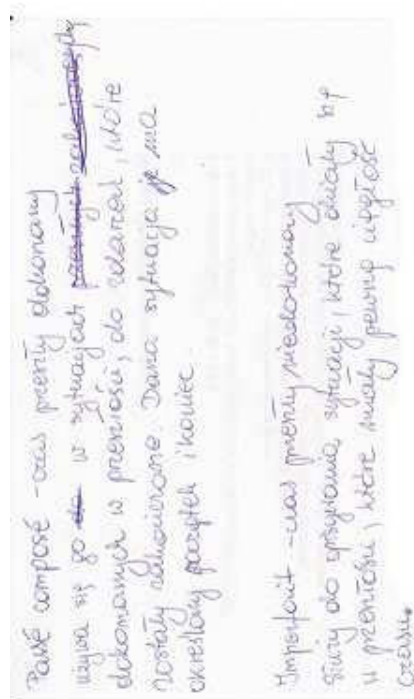 Passé composé - czas przeszły dokonany
używa się go w sytuacjach
dokonanych w przeszłości, do zdarzeń, które
zostały zakończone. Dana sytuacja ma
określony początek i koniec.
Imparfait - czas przeszły niedokonany
Służy do opisywania sytuacji, które działy się
w przeszłości, które miały pewną ciągłość
czasu.